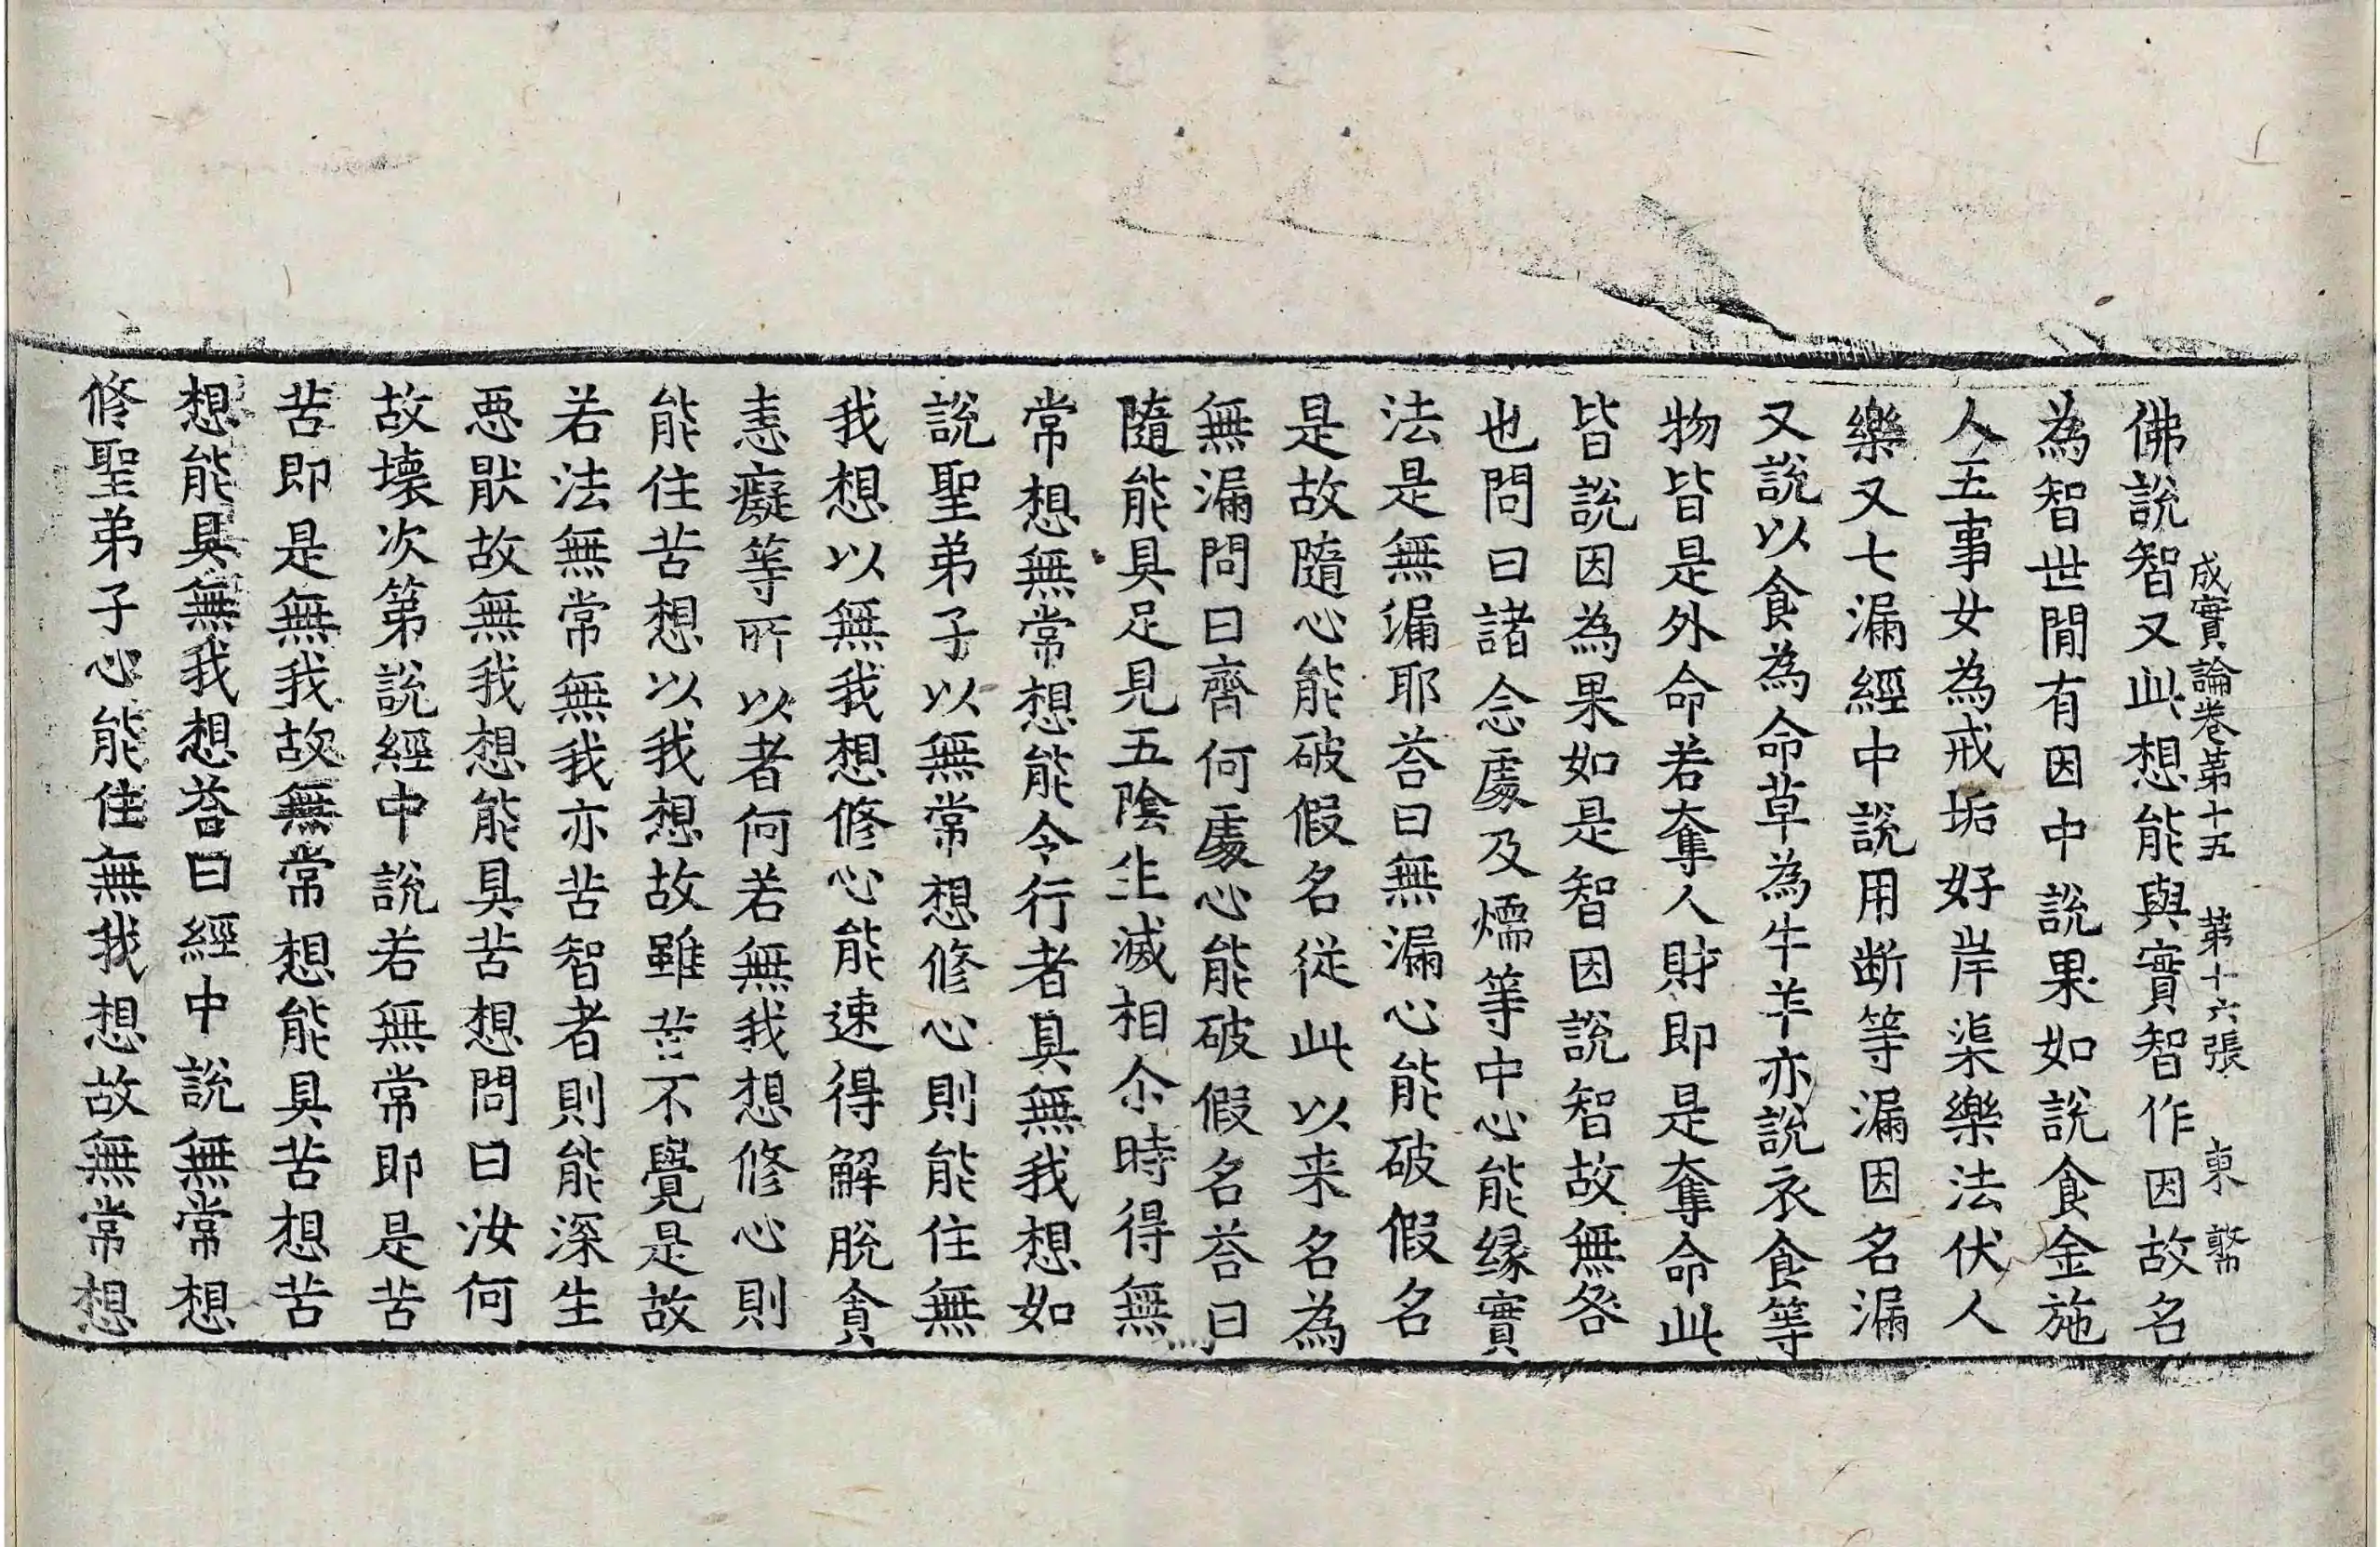 成實論卷第十五　第十六張　東
佛說智又此想能與實智作因故名
為智世閒有因中說果如說食金施
人五事女為戒垢好岸渠樂法伏人
樂又七漏經中說用断等漏因名漏
又說以食為命草為牛羊亦說衣食等
物皆是外命若奪人財即是奪命此
皆說因為果如是智因說智故無咎
也問曰諸念處及燸等中心能縁實
法是無漏耶荅曰無漏心能破假名
是故隨心能破假名從此以来名為
無漏問曰齊何處心能破假名荅曰
隨能具足見五陰生滅相尒時得無
常想無常想能令行者具無我想如
說聖弟子以無常想修心則能住無
我想以無我想修心能速得解脫貪
恚癡等所以者何若無我想修心則
能住苦想以我想故雖苦不覺是故
若法無常無我亦苦智者則能深生
惡猒故無我想能具苦想問曰汝何
故壞次第說經中說若無常即是苦
苦即是無我故無常想能具苦想苦
想能具無我想荅曰經中說無常想
修聖弟子心能住無我想故無常想